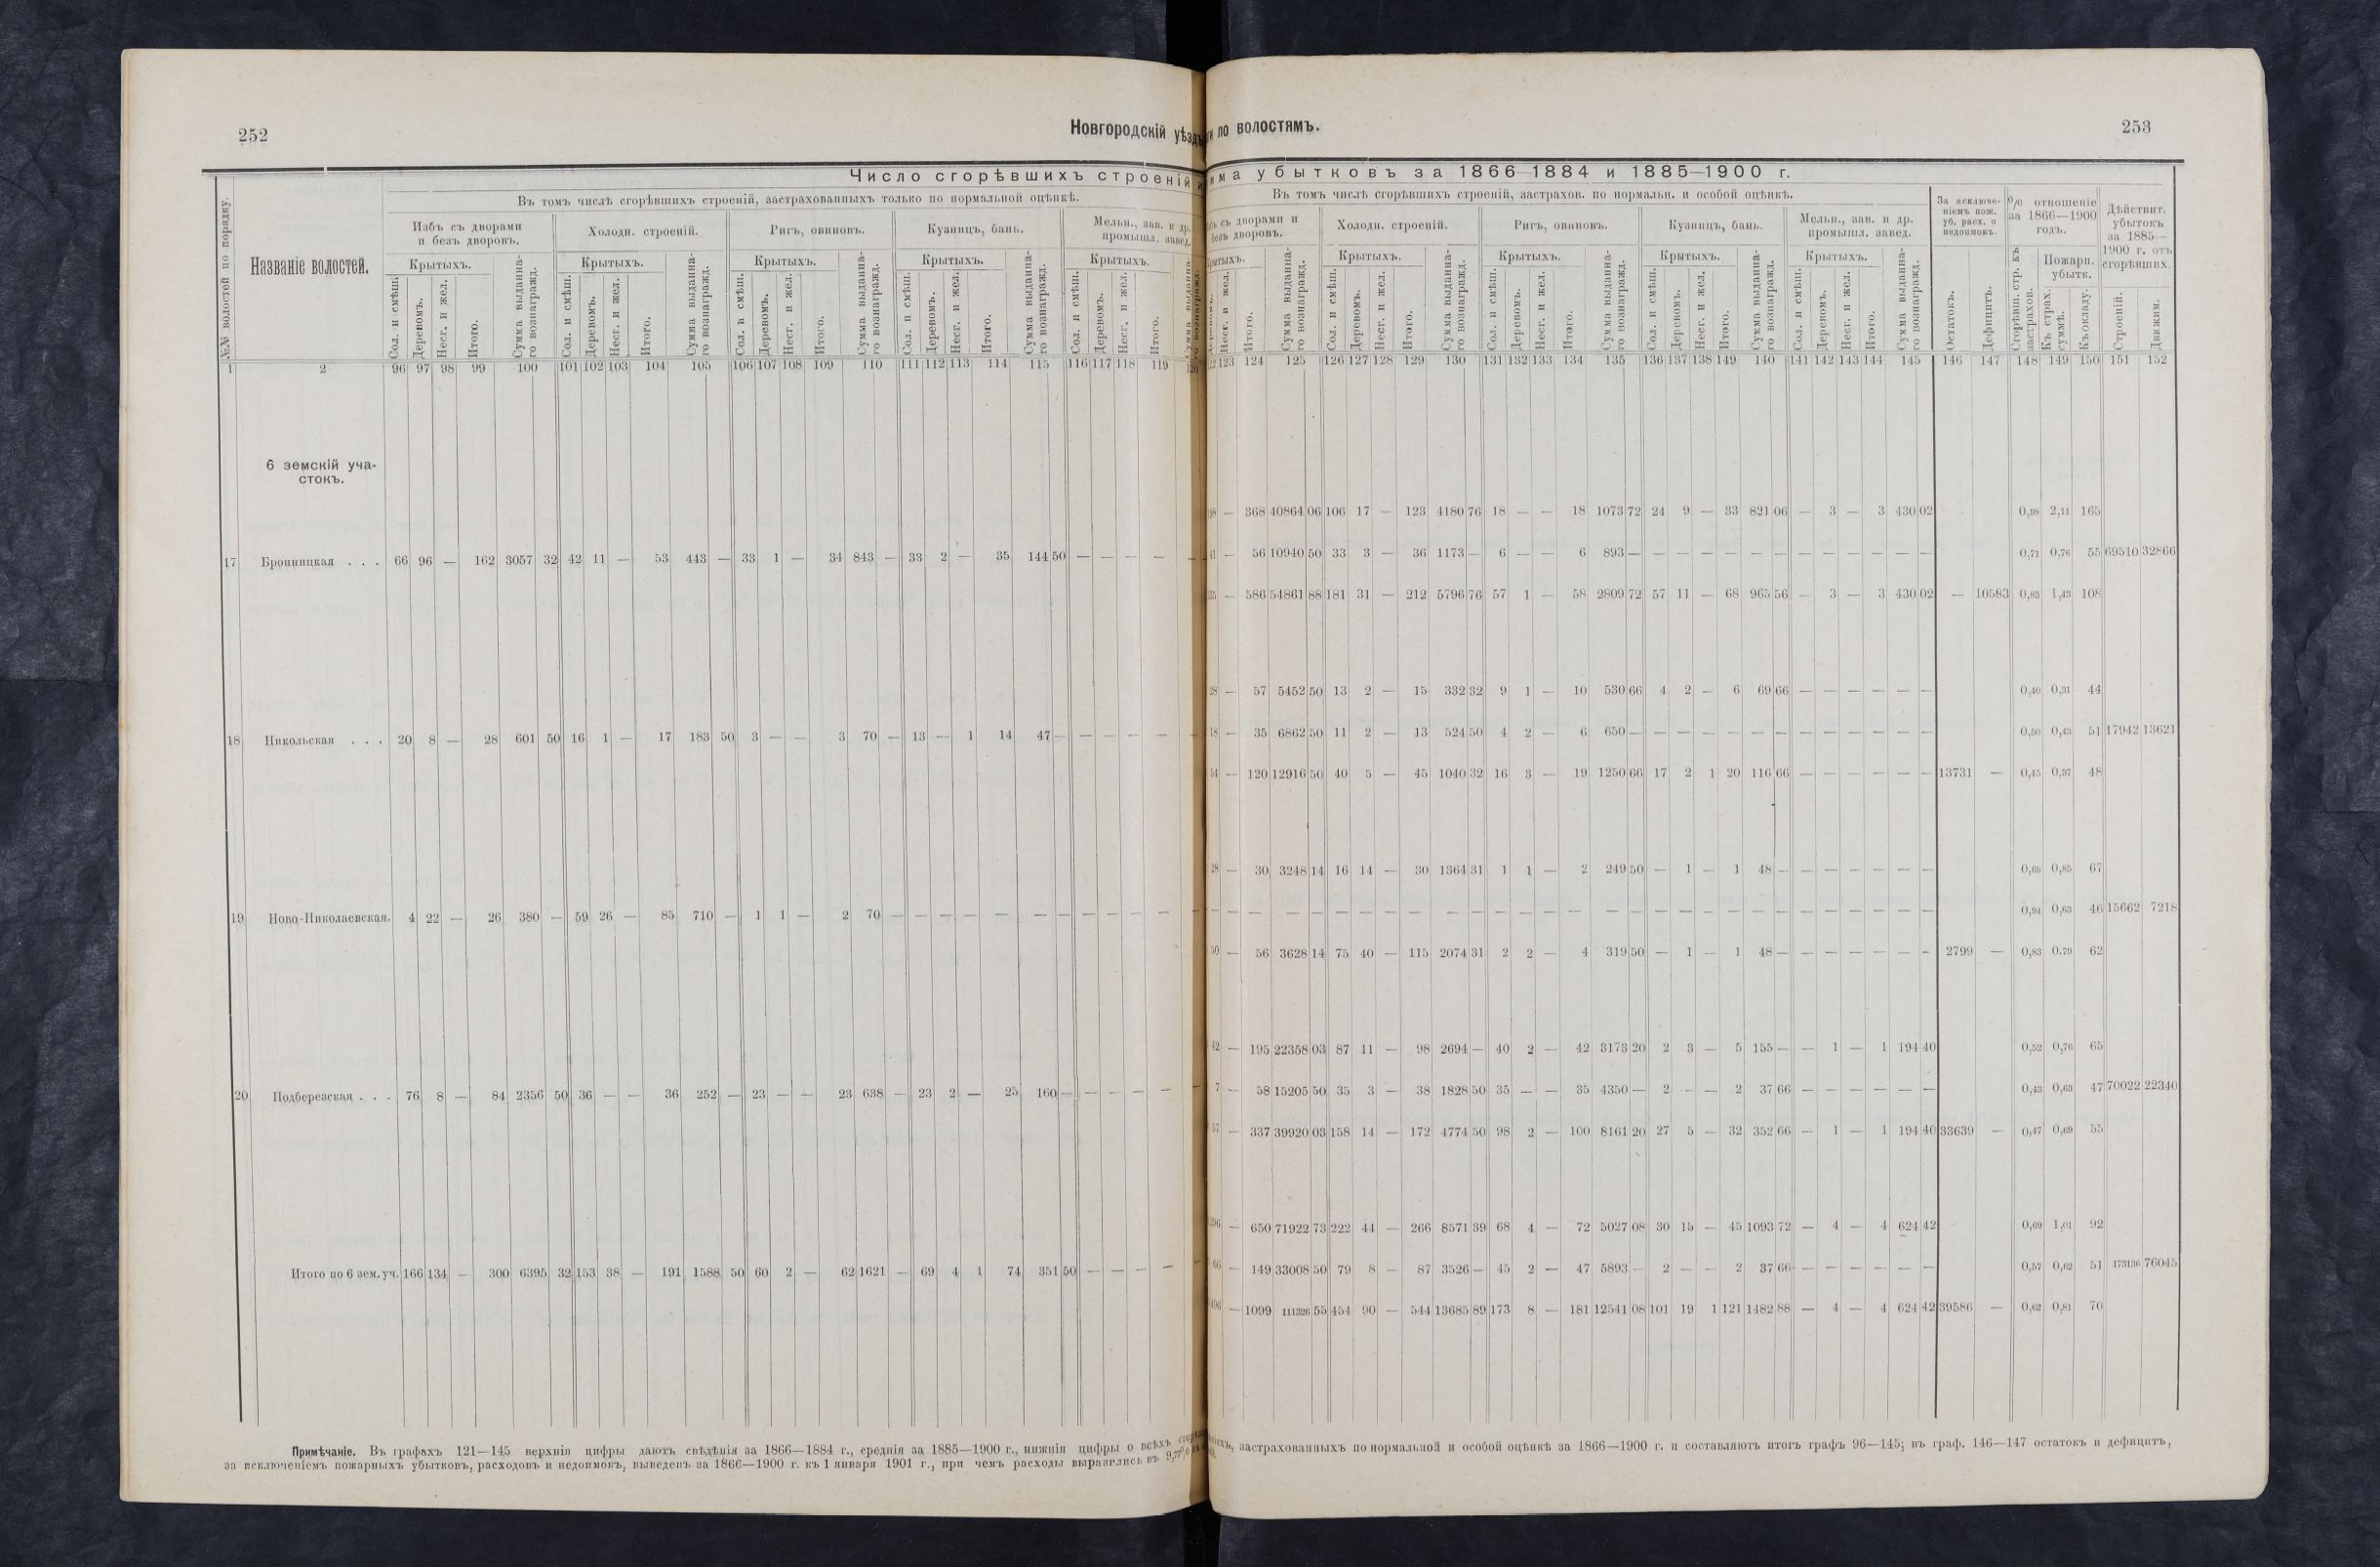 252
Новгородскій уѣздъ
ги по волостямъ.
253
Число сгорѣвшихъ строеній и
мма убытковъ за 1866—1884 и 1885—1900 г.
№№ волостей по порядку.
Названіе волостей.
Въ томъ числѣ сгорѣвшихъ строеній, застрахованныхъ только по нормальной оцѣнкѣ.
Избъ съ дворами и безъ дворовъ.
Холодн. строеній.
Ригъ, овиновъ.
Кузницъ, бань.
Мельн., зав. и др. промышл. завед.
Крытыхъ. Крытыхъ. Крытыхъ. Крытыхъ. Крытыхъ.
Сол. и смѣш. Деревомъ. Несг. и жел. Итого. Сумма выданна-го вознагражд.
Сол. и смѣш. Деревомъ. Несг. и жел. Итого. Сумма выданна-го вознагражд.
Сол. и смѣш. Деревомъ. Несг. и жел. Итого. Сумма выданна-го вознагражд.
Сол. и смѣш. Деревомъ. Несг. и жел. Итого. Сумма выданна-го вознагражд.
Сол. и смѣш. Деревомъ. Несг. и жел. Итого.
1 2 96 97 98 99 100 101 102 103 104 105 106 107 108 109 110 111 112 113 114 115 116 117 118 119 120
6 земскій уча-
стокъ.
17 Бронницкая . . . 66 96 — 162 3057 32 42 11 — 53 443 — 33 1 — 34 843 — 33 2 — 35 144 50 — — — — —
18 Никольская . . . 20 8 — 28 601 50 16 1 — 17 183 50 3 — — 3 70 — 13 — 1 14 47 — — — — — —
19 Ново-Николаевская. 4 22 — 26 380 — 59 26 — 85 710 — 1 1 — 2 70 — — — — — — — — — —
20 Подберезская . . . 76 8 — 84 2356 50 36 — — 36 252 — 23 — — 23 638 — 23 2 — 25 160 — — — — — —
Итого по 6 зем. уч. 166 134 — 300 6395 32 153 38 — 191 1588 50 60 2 — 62 1621 — 69 4 1 74 351 50 — — — — —
Въ томъ числѣ сгорѣвшихъ строеній, застрахов. по нормальн. и особой оцѣнкѣ.
съ дворами и безъ дворовъ.
Холодн. строеній.
Ригъ, овиновъ.
Кузницъ, бань.
Мельн., зав. и др. промышл. завед.
За исключе-ніемъ пож. уб, расх. и недоимокъ.
% отношеніе за 1866—1900 годъ.
Дѣйствит. убытокъ за 1885—1900 г. отъ сгорѣвших.
Крытыхъ. Крытыхъ. Крытыхъ. Крытыхъ.
Пожарн. убытк.
Несг. и жел. Итого. Сумма выданна-го вознагражд.
Сол. и смѣш. Деревомъ. Несг. и жел. Итого. Сумма выданна-го вознагражд.
Сол. и смѣш. Деревомъ. Несг. и жел. Итого. Сумма выданна-го вознагражд.
Сол. и смѣш. Деревомъ. Несг. и жел. Итого. Сумма выданна-го вознагражд.
Сол. и смѣш. Деревомъ. Несг. и жел. Итого. Сумма выданна-го вознагражд.
Остатокъ. Дефицитъ. Сгорѣвш. стр. къ застрахов. Къ страх. суммѣ. Къ окладу. Строеній. Движим.
123 124 125 126 127 128 129 130 131 132 133 134 135 136 137 138 149 140 141 142 143 144 145 146 147 148 149 150 151 152
— 368 40864 06 106 17 — 123 4180 76 18 — — 18 1073 72 24 9 — 33 821 06 — 3 — 3 430 02 0,98 2,11 165
— 56 10940 50 33 3 — 36 1173 — 6 — — 6 893 — — — — — — — — — — — — 0,71 0,76 55 69510 32866
— 586 54861 88 181 31 — 212 5796 76 57 1 — 58 2809 72 57 11 — 68 965 56 — 3 — 3 430 02 — 10583 0,83 1,43 108
28 — 57 5452 50 13 2 — 15 332 32 9 1 — 10 530 66 4 2 — 6 69 66 — — — — — — 0,40 0,31 44
18 — 35 6862 50 11 2 — 13 524 50 4 2 — 6 650 — — — — — — — — — — — — — 0,50 0,43 51 17942 13621
54 — 120 12916 50 40 5 — 45 1040 32 16 3 — 19 1250 66 17 2 1 20 116 66 — — — — — — 13731 — 0,45 0,37 48
28 — 30 3248 14 16 14 — 30 1364 31 1 1 — 2 249 50 — 1 — 1 48 — — — — — — — 0,69 0,85 67
— — — — — — — — — — — — — — — — — — — — — — — — — — 0,94 0,63 46 15662 7218
50 — 56 3628 14 75 40 — 115 2074 31 2 2 — 4 319 50 — 1 — 1 48 — — — — — — — 2799 — 0,83 0.79 62
42 — 195 22358 03 87 11 — 98 2694 — 40 2 — 42 3173 20 2 3 — 5 155 — — 1 — 1 194 40 0,52 0,76 65
7 — 58 15205 50 35 3 — 38 1828 50 35 — — 35 4350 — 2 — — 2 37 66 — — — — — — 0,43 0,63 47 70022 22340
57 — 337 39920 03 158 14 — 172 4774 50 98 2 — 100 8161 20 27 5 — 32 352 66 — 1 — 1 194 40 33639 — 0,47 0,69 55
296 — 650 71922 73 222 44 — 266 8571 39 68 4 — 72 5027 08 30 15 — 45 1093 72 — 4 — 4 624 42 0,69 1,01 92
66 — 149 33008 50 79 8 — 87 3526 — 45 2 — 47 5893 — 2 — — 2 37 66 — — — — — — 0,57 0,62 51 173136 76045
496 — 1099 111326 55 454 90 — 544 13685 89 173 8 — 181 12541 08 101 19 1 121 1482 88 — 4 — 4 624 42 39586 — 0,62 0,81 70
Примѣчаніе. Въ графахъ 121—145 верхнія цифры даютъ свѣдѣнія за 1866—1884 г., среднія за 1885—1900 г., нижнія цифры о всѣхъ
застрахованныхъ по нормальной и особой оцѣнкѣ за 1866—1900 г. и составляютъ итогъ графъ 96—145; въ граф. 146—147 остатокъ и дефицитъ,
за исключеніемъ пожарныхъ убытковъ, расходовъ и недоимокъ, выведенъ за 1866—1900 г. къ 1 января 1901 г., при чемъ расходы выразились въ